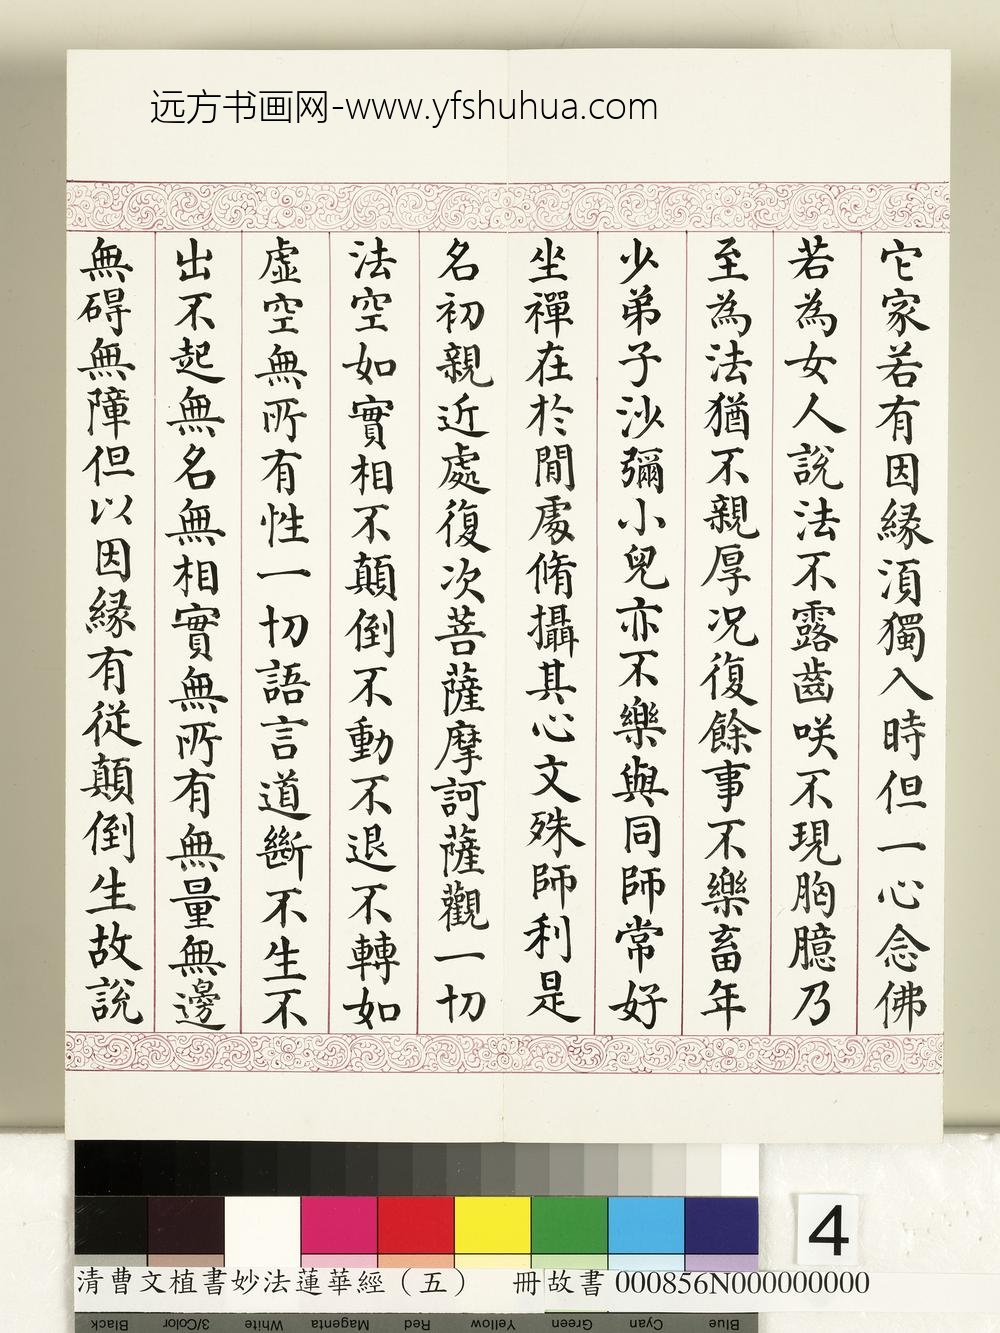 远方书画网-www.yfshuhua.com
它家若有因緣湏獨入時但一心念佛
若為女人說法不露齒咲不現胸臆乃
至為法猶不親厚况復餘事不樂畜年
少弟子沙彌小兒亦不樂與同師常好
坐禪在於閒處脩攝其心文殊師利是
名初親近處復次菩薩摩訶薩觀一切
法空如實相不顛倒不動不退不轉如
虛空無所有性一切語言道斷不生不
出不起無名無相實無所有無量無邊
無碍無障但以因緣有從顛倒生故說
4
清曹文植書妙法蓮華經（五） 冊故書 000856N000000000
Black 3/Color White Magenta Red Yellow Green Cyan Blue